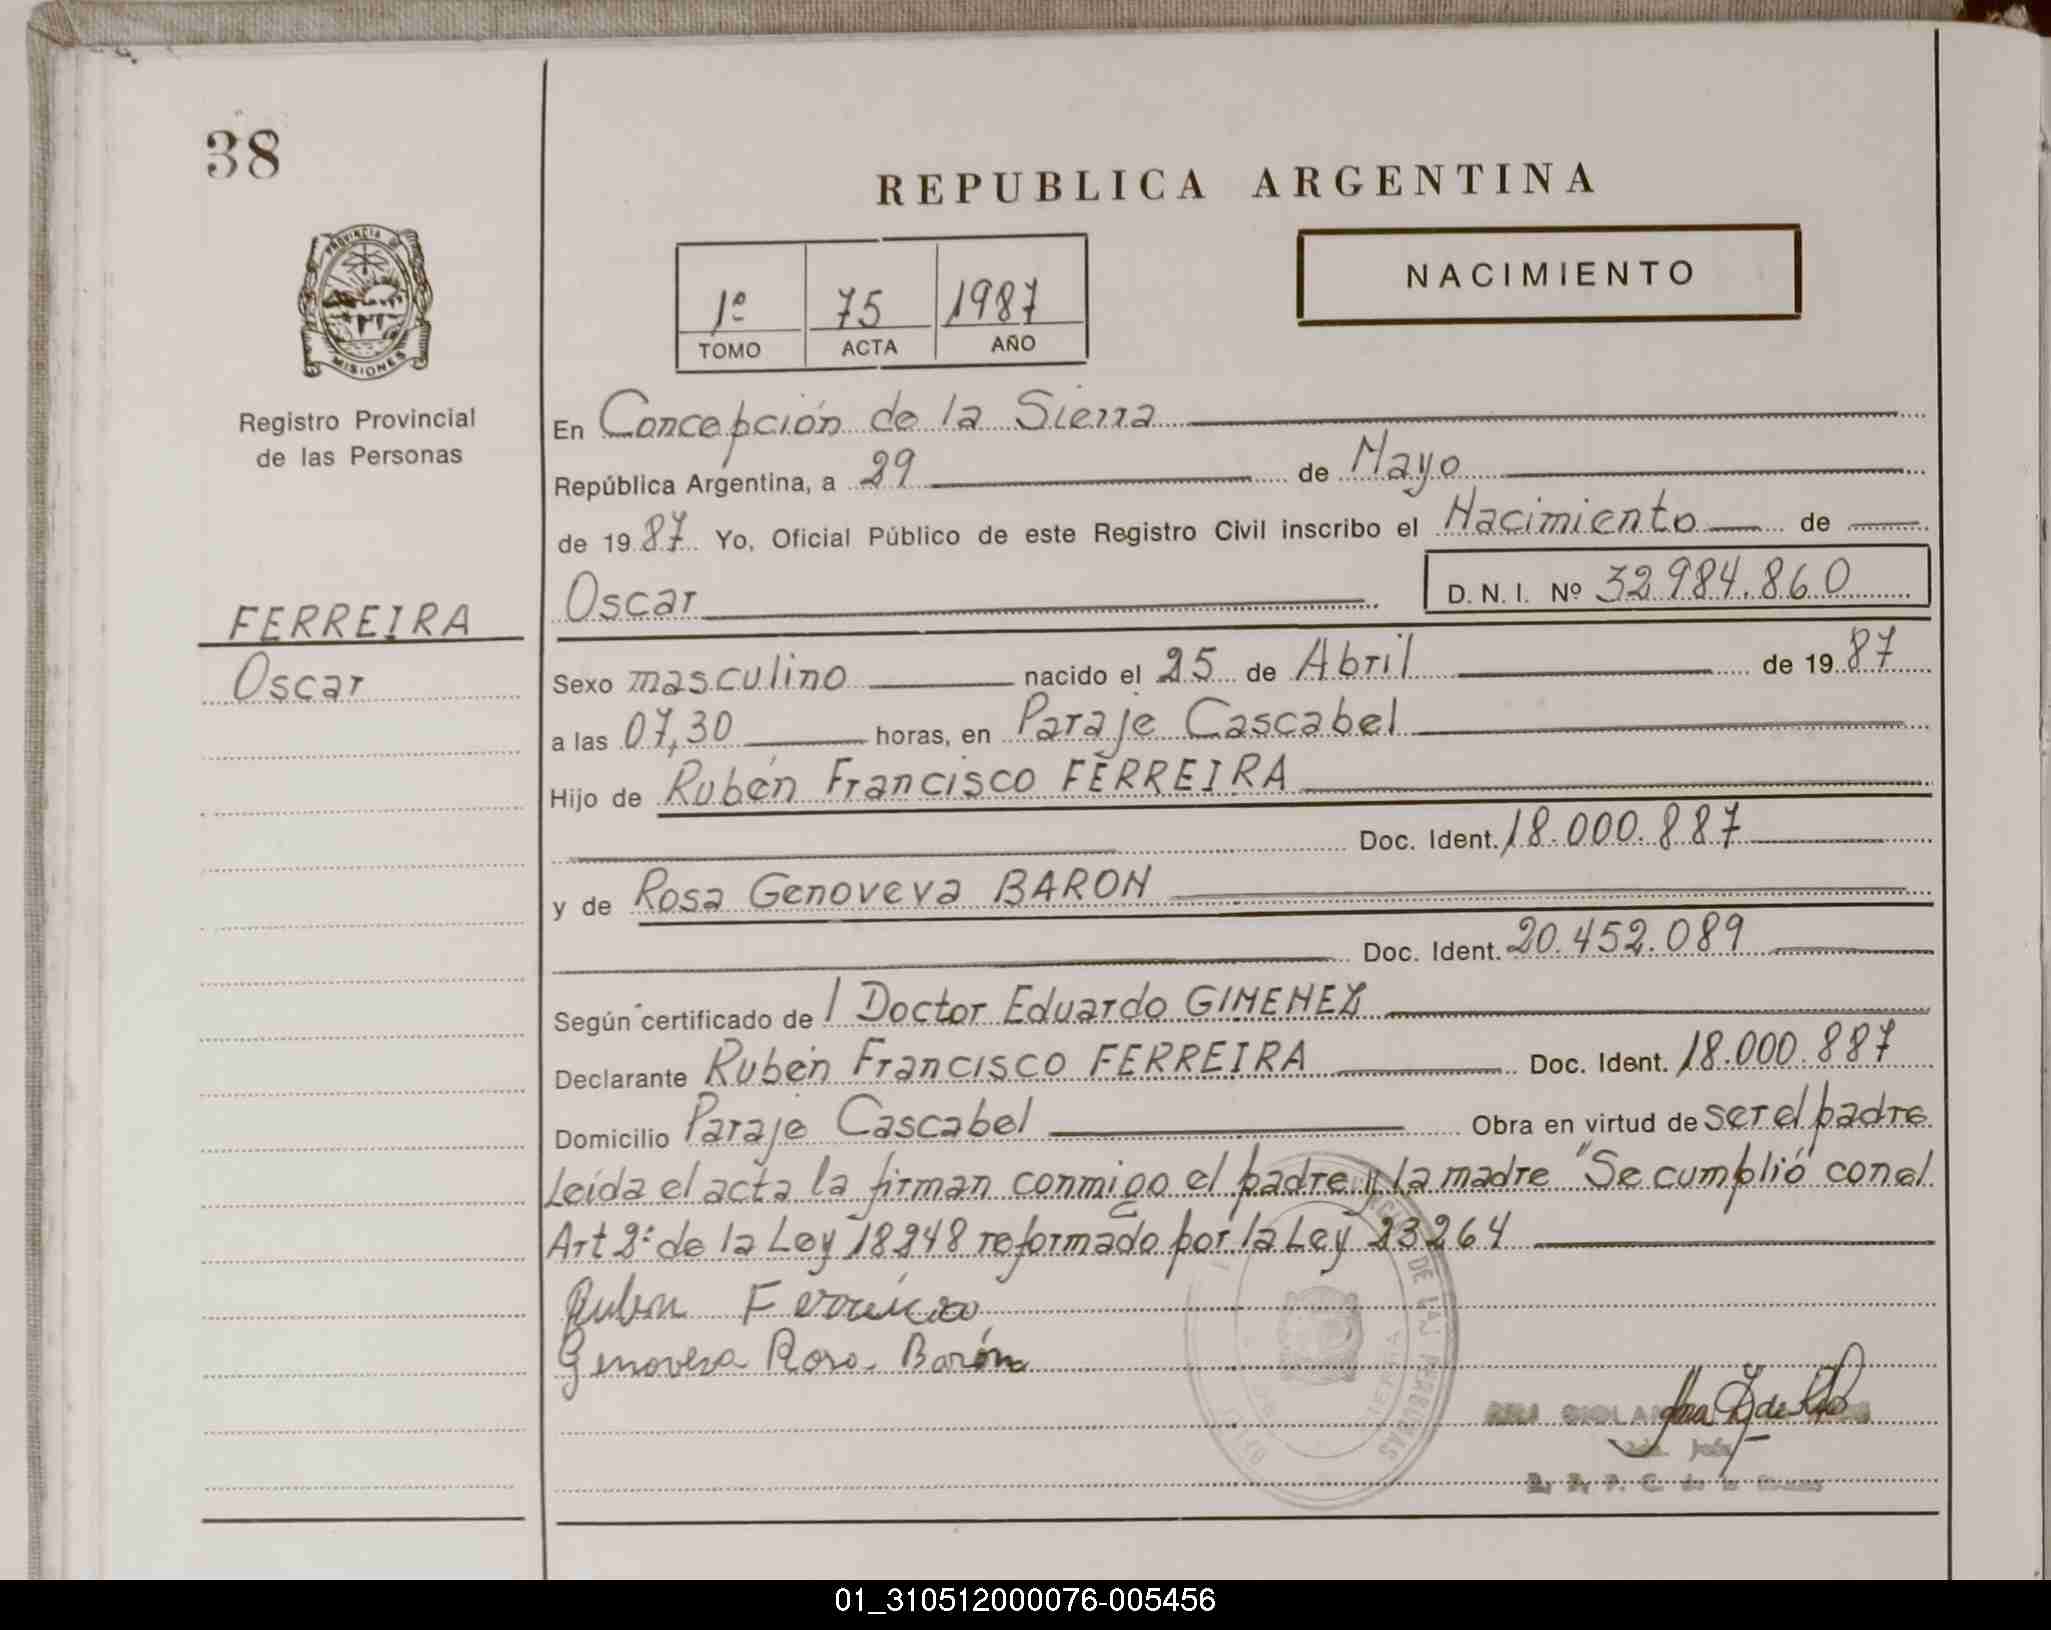 38
REPUBLICA ARGENTINA
PROVINCIA DE
MISIONES
Registro Provincial
de las Personas
NACIMIENTO
1º 75 1987
TOMO ACTA AÑO
En Concepción de la Sierra
República Argentina, a 29 de Mayo
de 1987 Yo, Oficial Público de este Registro Civil inscribo el Nacimiento de
Oscar D. N. I. Nº 32.984.860
FERREIRA
Oscar
Sexo masculino nacido el 25 de Abril de 1987
a las 07,30 horas, en Paraje Cascabel
Hijo de Rubén Francisco FERREIRA
Doc. Ident. 18.000.887
y de Rosa Genoveva BARON
Doc. Ident. 20.452.089
Según certificado de l Doctor Eduardo GIMENEZ
Declarante Rubén Francisco FERREIRA Doc. Ident. 18.000.887
Domicilio Paraje Cascabel Obra en virtud de ser el padre
Leída el acta la firman conmigo el padre y la madre "Se cumplió" con el
Art 2º de la Ley 18248 reformado por la Ley 23264
Ruben Ferreira
Genoveva Rosa Barón
DE LAS PERSONAS
SIERRA
01_310512000076-005456